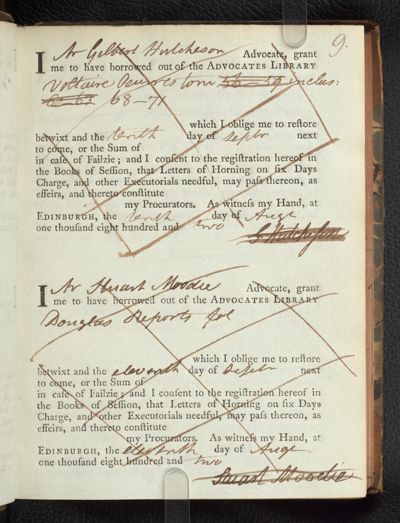 9.
I Mr Gilbert Hutcheson Advocate, grant
me to have borrowed out of the ADVOCATES LIBRARY
Voltaire Oeuvres tom 56 - 59 inclus:
68-71
which I oblige me to restore
betwixt and the tenth day of Septr next
to come, or the Sum of
in case of Failzie; and I consent to the registration hereof in
the Books of Session, that Letters of Horning on six Days
Charge, and other Executorials needful, may pass thereon, as
effeirs, and thereto constitute
my Procurators. As witness my Hand, at
EDINBURGH, the tenth day of Augt
one thousand eight hundred and two
I Mr Stuart Moodie Advocate, grant
me to have borrowed out of the ADVOCATES LIBRARY
Douglas Reports fol
which I oblige me to restore
betwixt and the eleventh day of Septr next
to come, or the Sum of
in case of Failzie; and I consent to the registration hereof in
the Books of Session, that Letters of Horning on six Days
Charge, and other Executorials needful, may pass thereon, as
effeirs, and thereto constitute
my Procurators. As witness my Hand, at
EDINBURGH, the eleventh day of Augt
one thousand eight hundred and two
Stuart Moodie